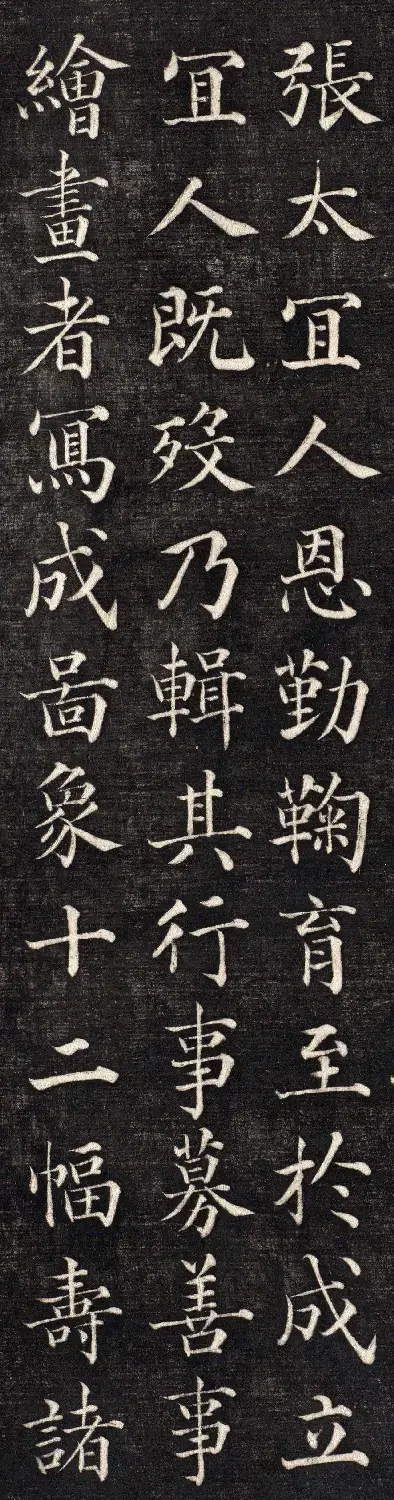 張太冝人恩勤鞠育至於成立
冝人既歿乃輯其行事募善事
繪畫者寫成啚象十二幅壽諸